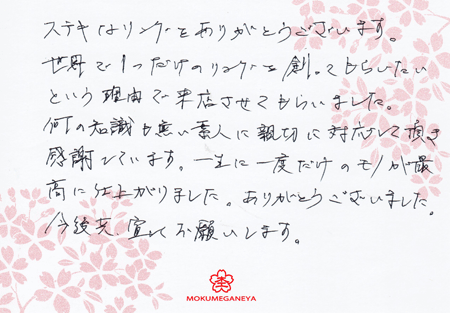 ステキなリングをありがとうございます。
世界で1つだけのリングを創ってもらいたい
という理由で来店させてもらいました。
何の知識も無い素人に親切に対応して頂き
感謝しています。一生に一度だけのモノが最
高に仕上がりました。ありがとうございました。
今後共、宜しくお願いします。
MOKUMEGANEYA